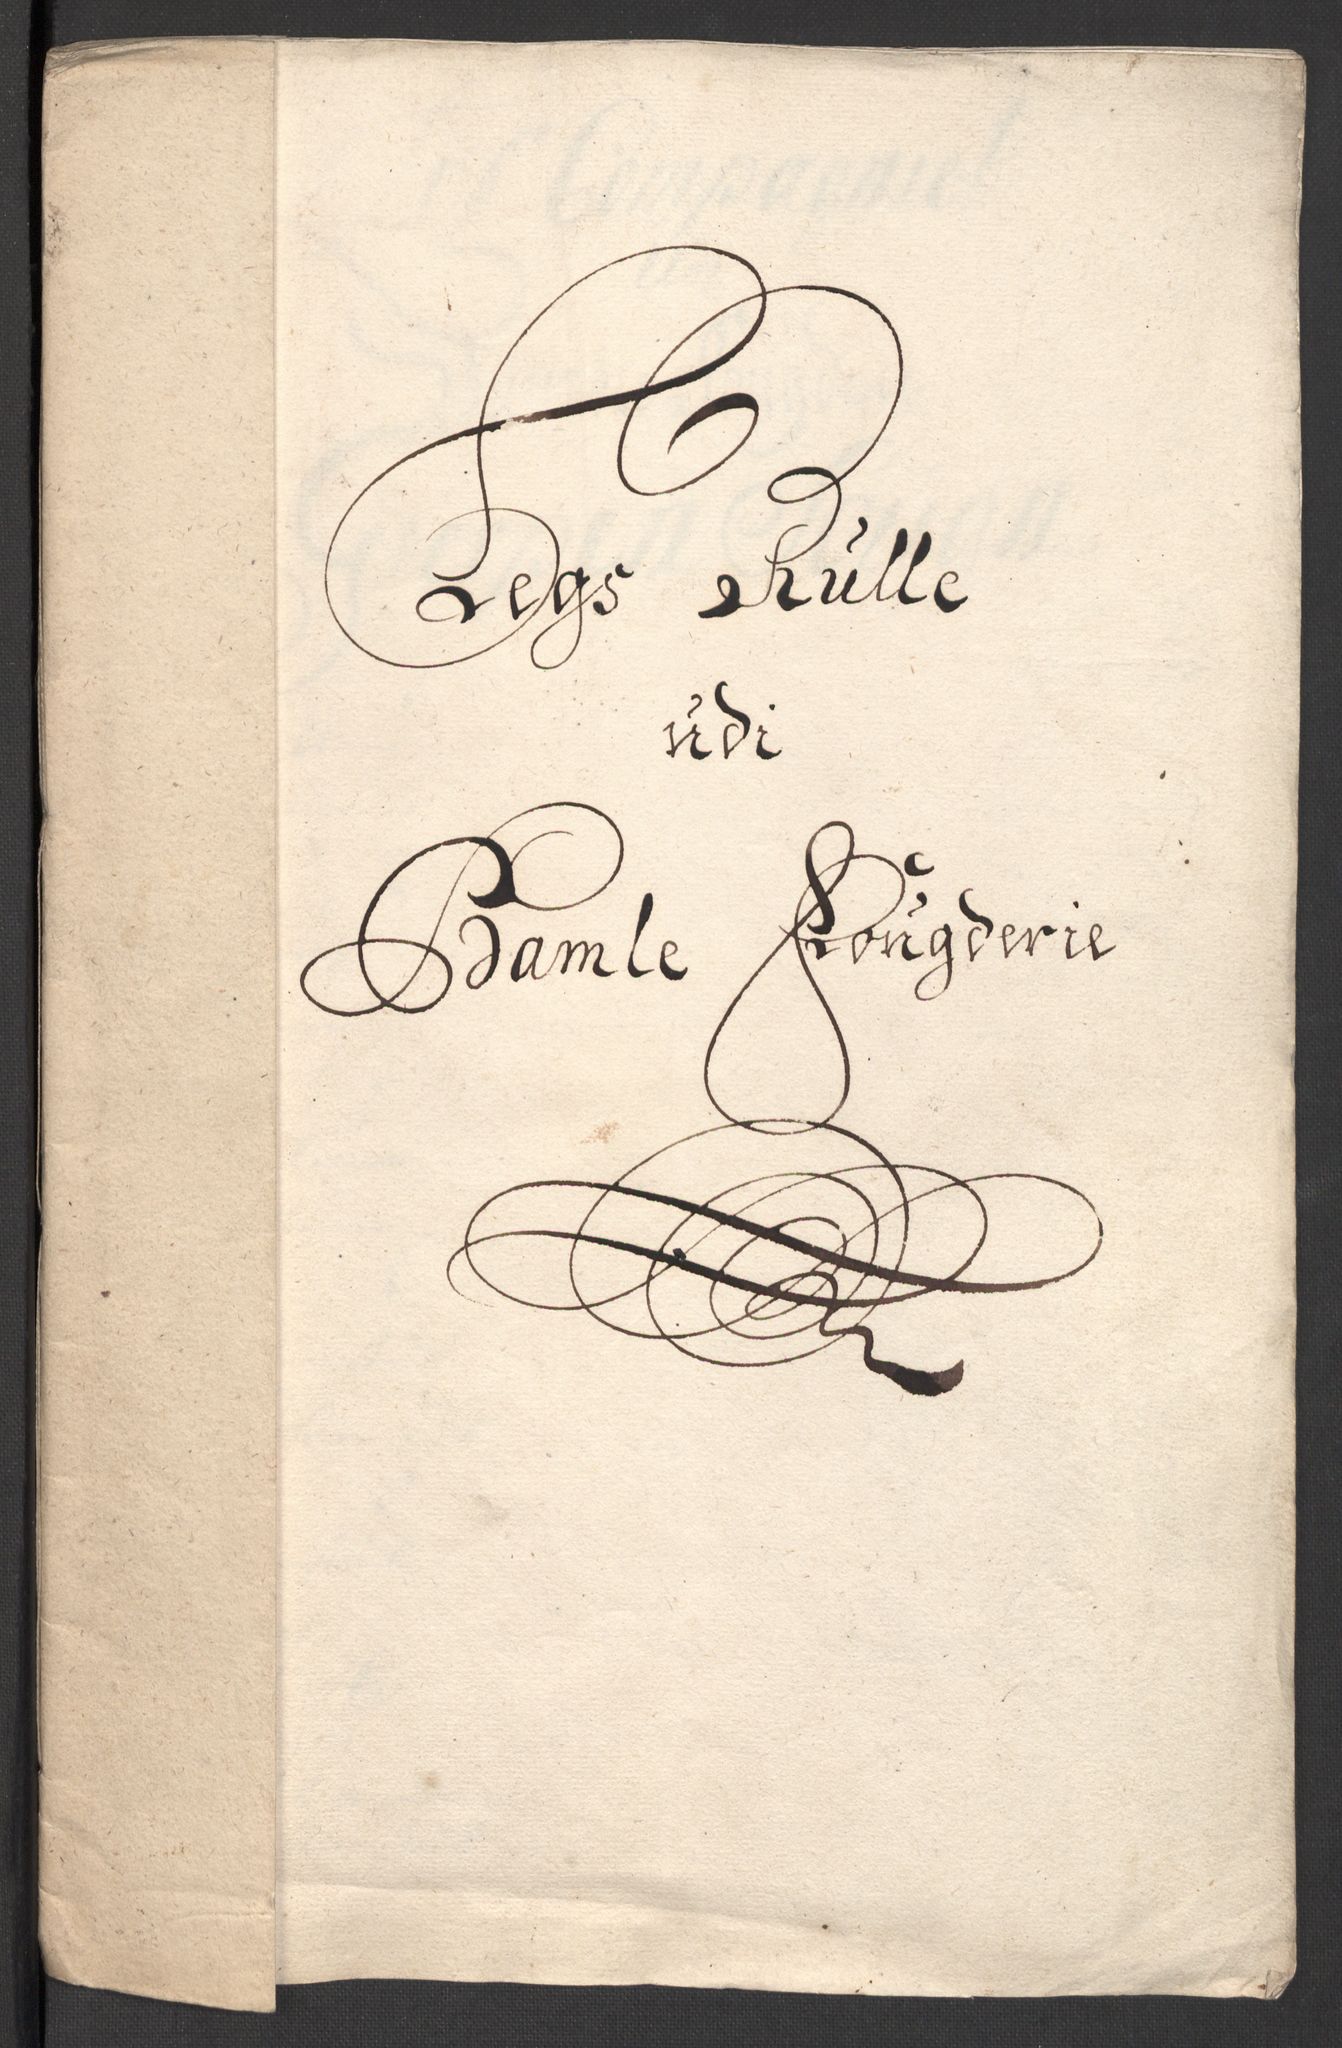 Legs Rúlle
údi
Bamle Foúgderie